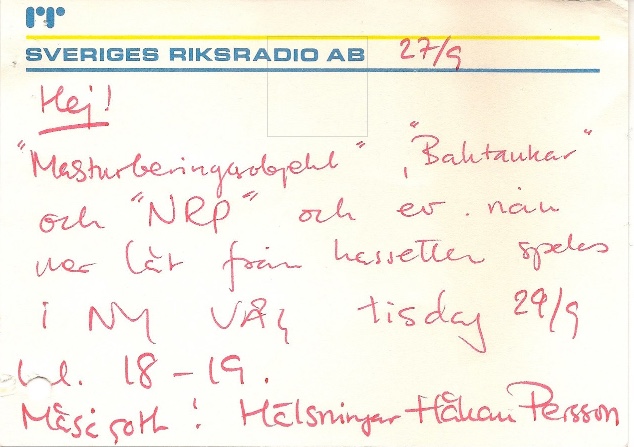 rr
SVERIGES RIKSRADIO AB 27/9
Hej!
"Masturberingsobjekt", "Baktankar"
och "NRP" och ev. nån
mer låt från kassetten spelas
i NY VÅG tisdag 29/9
kl. 18-19.
Må så gott! Hälsningar Håkan Persson